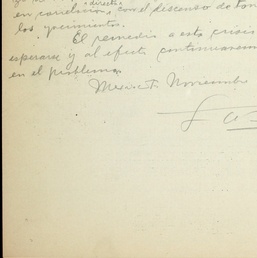 directa
en correlacion, con el descenso de
los yacimientos.
El remedio a esta crisis
esperarse y al efecto continuaremos
en el problema
Mexico Noviembre